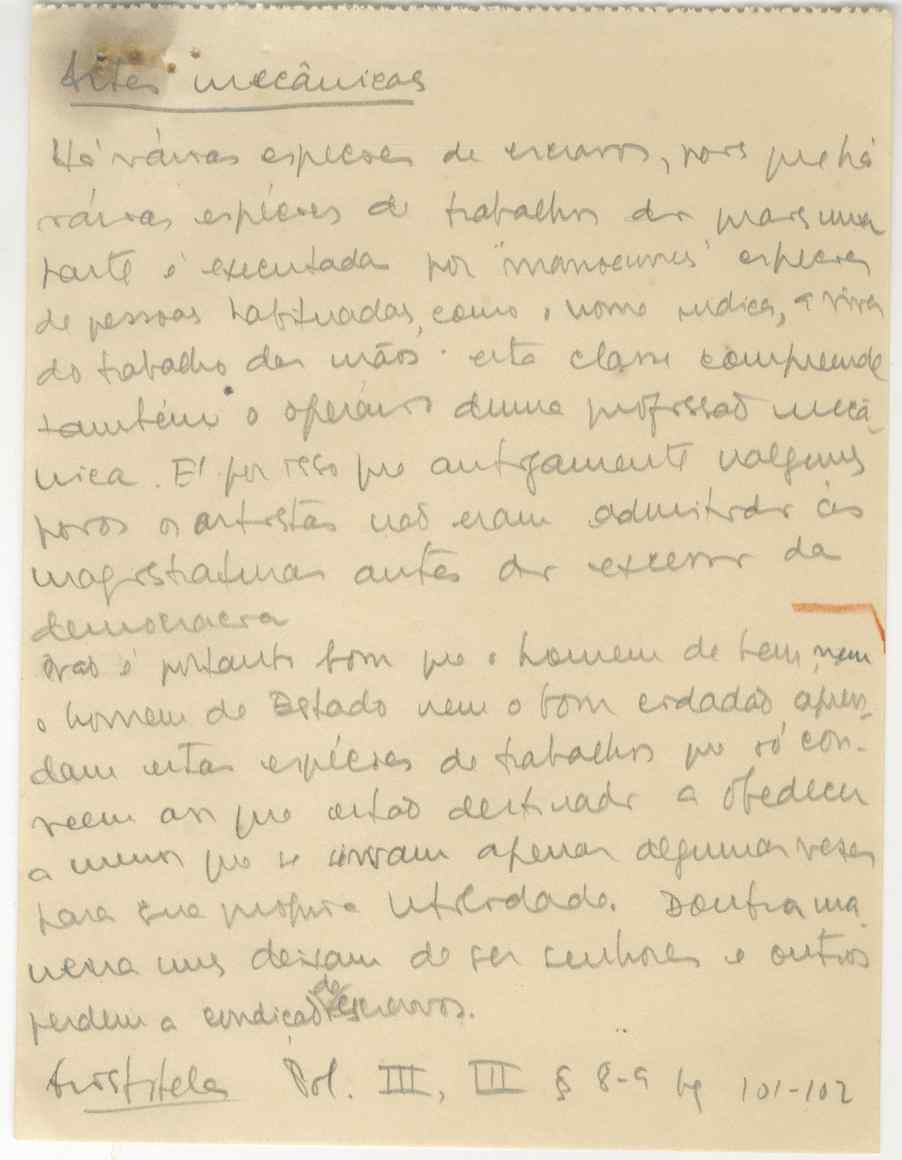 Artes mecânicas
Há várias espécies de escravos, pois que há
várias espécies de trabalhos dos quais uma
parte é executada por "manoeuvres" espécies
de pessoas habituadas, como o nome indica, a viver
do trabalho das mãos. esta classe compreende
também o operário duma profissão mecâ-
nica. E' por isso que antigamente nalguns
povos os artistas não eram admitidos às
magistraturas antes dos excessos da
democracia
Não é portanto bom que o homem de bem, nem
o homem de Estado nem o bom cidadão apren-
dam estas espécies de trabalhos que só con-
veem aos que estão destinados a obedecer
a menos que se sirvam apenas algumas vezes
para sua própria utilidade. Doutra ma-
neira uns deixam de ser senhores e outros
perdem a condição de escravos.
Aristóteles Pol. III, III § 8-9 pg 101-102